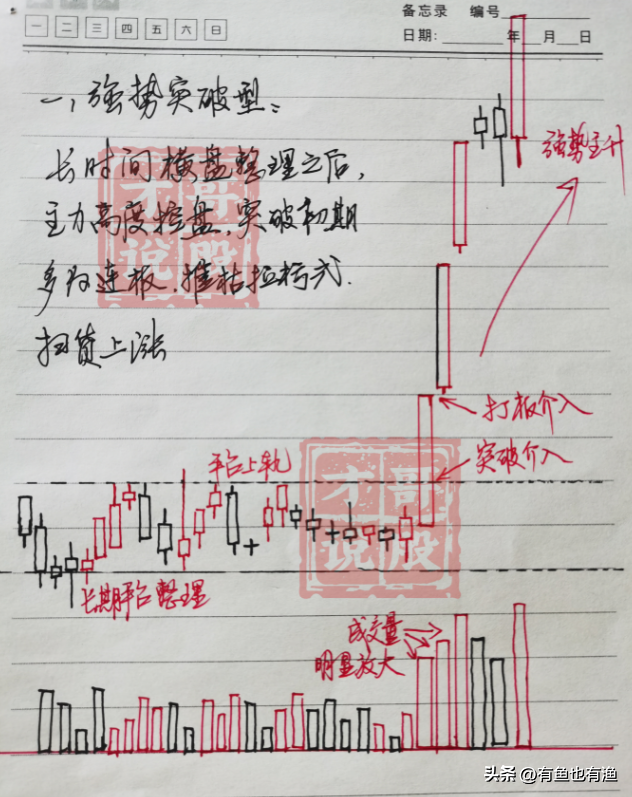 备忘录 编号
一 二 三 四 五 六 日
日期: 年 月 日
一、强势突破型:
长时间横盘整理之后,
主力高度控盘,突破初期
多为连板.摧枯拉朽式.
扫货上涨
强势主升
打板介入
突破介入
平台上轨
长期平台整理
成交量
明显放大
才哥
说股
才哥
说股
头条 @有鱼也有渔